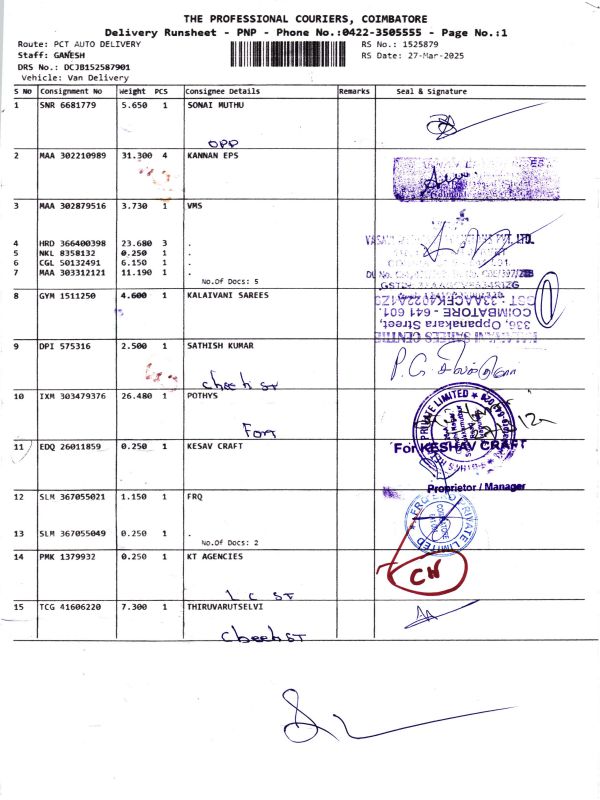 THE PROFESSIONAL COURIERS, COIMBATORE
Delivery Runsheet - PNP - Phone No.:0422-3505555 - Page No.:1
Route: PCT AUTO DELIVERY RS No.: 1525879
Staff: GANESH RS Date: 27-Mar-2025
DRS No.: DCJB152587901
Vehicle: Van Delivery
S NO Consignment No Weight PCS Consignee Details Remarks Seal & Signature
1 SNR 6681779 5.650 1 SONAI MUTHU
OPP
2 MAA 302210989 31.300 4 KANNAN EPS
3 MAA 302879516 3.730 1 VMS
4 HRD 366400398 23.680 3 .
5 NKL 8358132 0.250 1 .
6 CGL 50132491 6.150 1 .
7 MAA 303312121 11.190 1 .
No.Of Docs: 5
8 GYM 1511250 4.600 1 KALAIVANI SAREES
336, Oppanakara Street,
COIMBATORE - 641 001.
9 DPI 575316 2.500 1 SATHISH KUMAR
10 IXM 303479376 26.480 1 POTHYS
PRIVATE LIMITED
11 EDQ 26011859 0.250 1 KESAV CRAFT
For KESHAV CRAFT
Proprietor / Manager
12 SLM 367055021 1.150 1 FRQ
PRIVATE LIMITED
13 SLM 367055049 0.250 1 .
No.Of Docs: 2
14 PMK 1379932 0.250 1 KT AGENCIES
CH
L C ST
15 TCG 41606220 7.300 1 THIRUVARUTSELVI